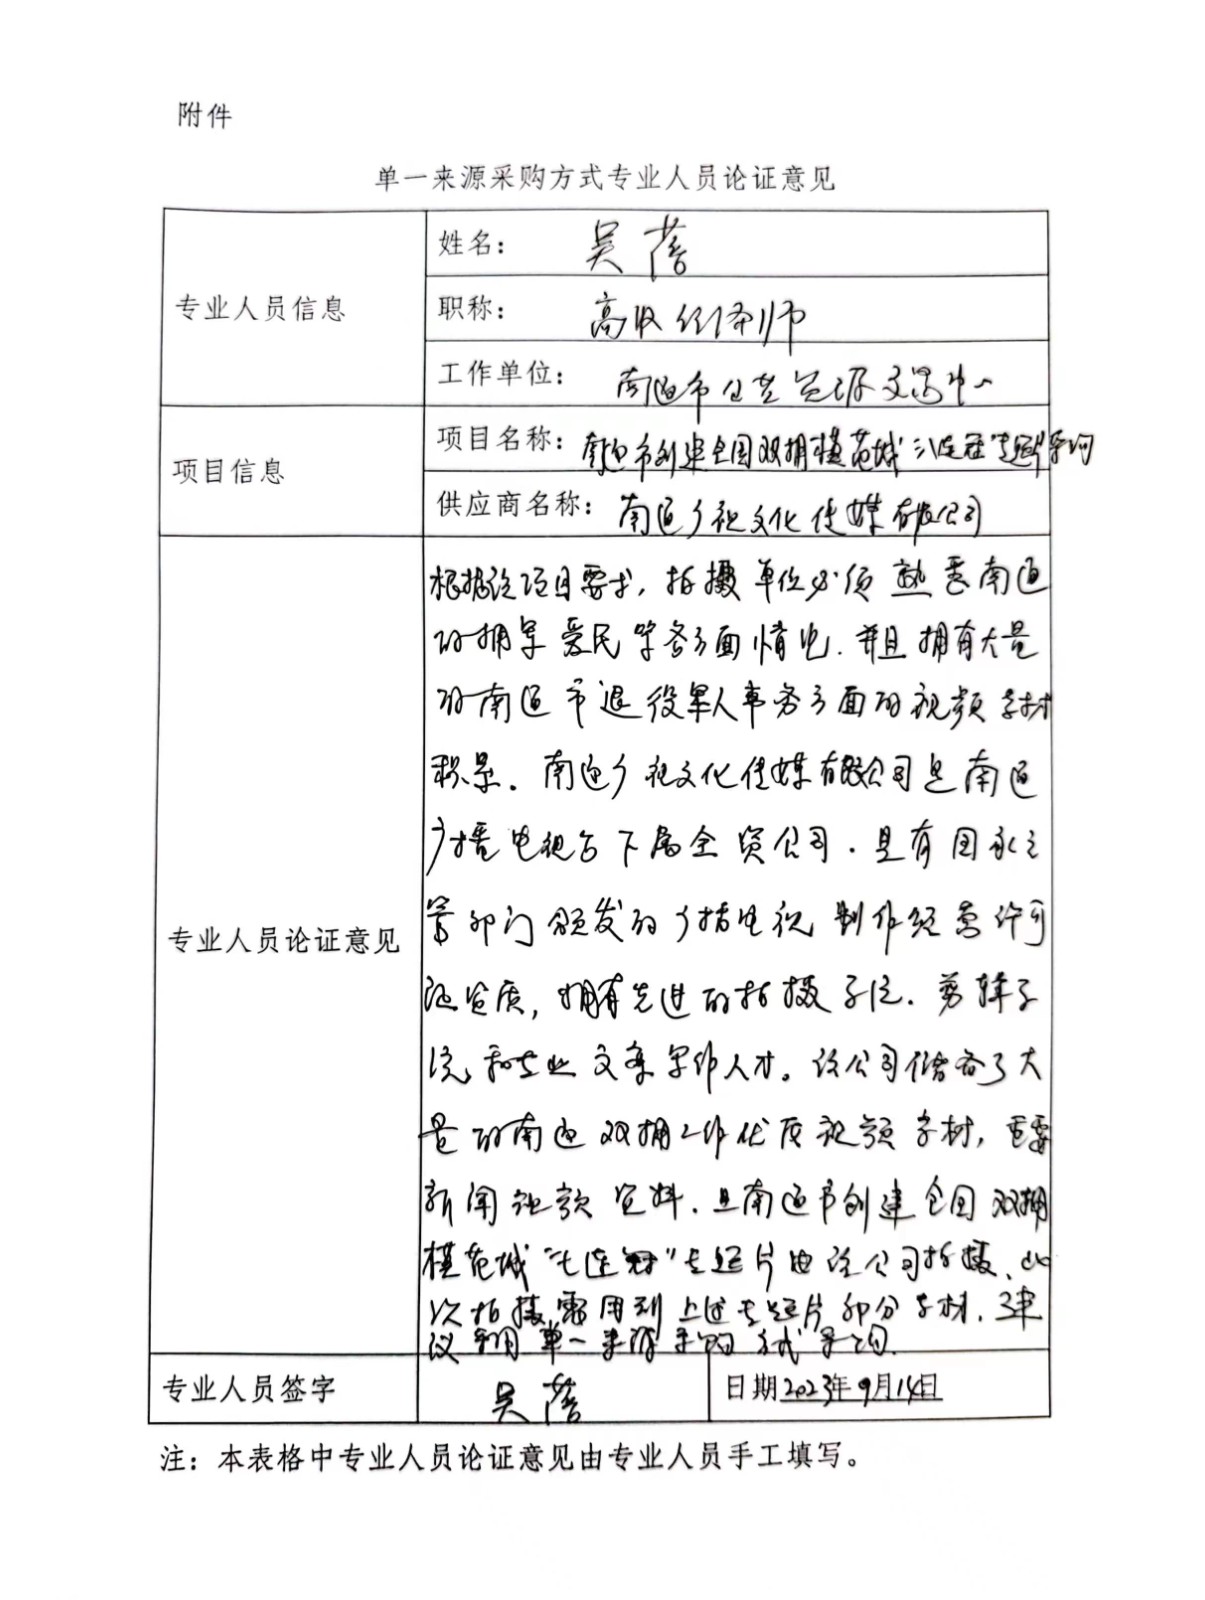 附件
单一来源采购方式专业人员论证意见
专业人员信息
姓名： 吴蓓
职称： 高级经济师
工作单位： 南通市公共资源交易中心
项目信息
项目名称：南通市创建全国双拥模范城“八连冠”专题片采购
供应商名称：南通广视文化传媒有限公司
专业人员论证意见
根据该项目要求，拍摄单位必须熟悉南通
的拥军爱民等各方面情况.并且拥有大量
的南通市退役军人事务方面的视频素材
积累。南通广视文化传媒有限公司是南通
广播电视台下属全资公司.具有国家主
管部门颁发的广播电视制作经营许可
证资质，拥有先进的拍摄系统.剪辑系
统和专业文案写作人才。该公司储备了大
量的南通双拥工作优质视频素材，重要
新闻视频资料.且南通市创建全国双拥
模范城“七连冠”专题片由该公司拍摄、此
次拍摄需用到上述专题片部分素材.建
议采用单一来源采购方式采购.
专业人员签字
吴蓓
日期2023年9月14日
注：本表格中专业人员论证意见由专业人员手工填写。